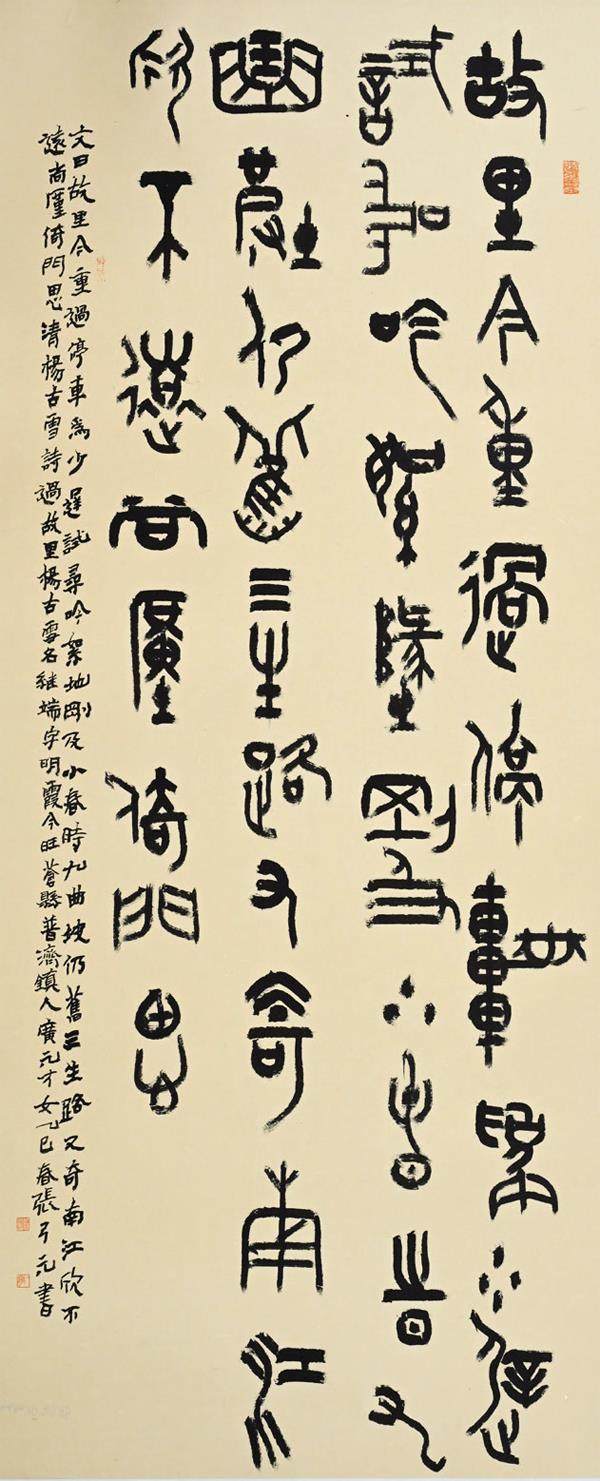 故里今重過停車為少遲
試尋吟絮地剛及小春時九
曲坡仍舊三生路又奇南江
欣不遠尚廑倚門思
文曰故里今重過停車為少遲試尋吟絮地剛及小春時九曲坡仍舊三生路又奇南江欣不
遠尚廑倚門思清楊古雪詩過故里楊古雪名繼端字明霞今旺蒼縣普濟鎮人廣元才女乙巳春張元書